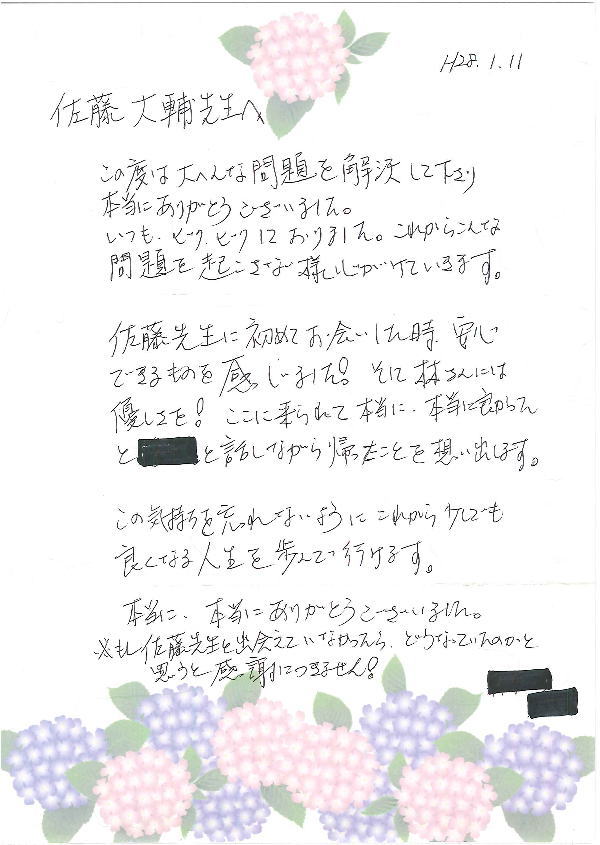 H28.1.11
佐藤大輔先生へ
この度は大へんな問題を解決して下さり
本当にありがとうございました。
いつも、ビクビクしておりました。これからこんな
問題を起こさない様心がけていきます。
佐藤先生に初めてお会いした時、安心
できるものを感じました!そして林さんには
優しさを!ここに来られて本当に、本当に良かったね
と と話しながら帰ったことを想い出します。
この気持ちを忘れないようにこれから少しでも
良くなる人生を歩んで行けます。
本当に、本当にありがとうございました。
※もし佐藤先生と出会えていなかったら、どうなっていたのかと
思うと感謝につきません!